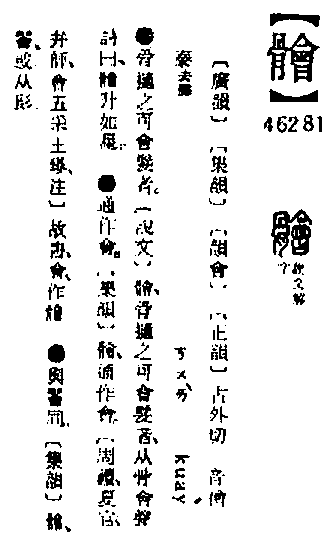 【䯤】
46281
說文解字
〔廣韻〕〔集韻〕〔韻會〕〔正韻〕古外切 音儈
泰去聲 ㄎㄨㄞˋ kuay
骨擿之可會髮者。〔說文〕䯤、骨擿之可會髮者、从骨會聲、
詩曰、䯤弁如星。 通作會。〔集韻〕䯤、通作會。〔周禮、夏官、
弁師、會五采玉璂、注〕故書、會、作䯤 與同。〔集韻〕䯤、
或从髟